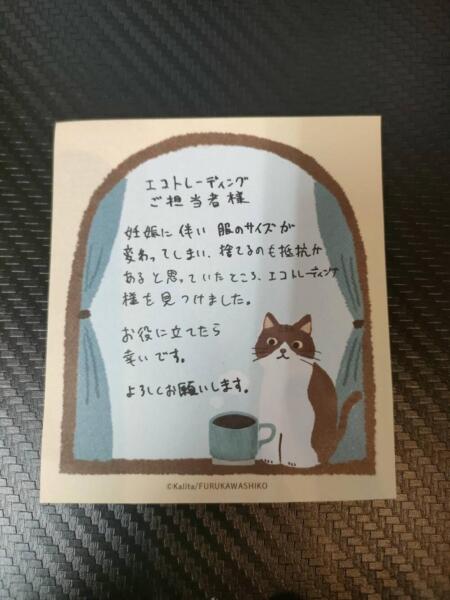 エコトレーディング
ご担当者様
妊娠に伴い 服のサイズが
変わってしまい、捨てるのも抵抗が
あると思っていたところ、エコトレーディング
様を見つけました。
お役に立てたら
幸いです。
よろしくお願いします。
©Kalita/FURUKAWASHIKO